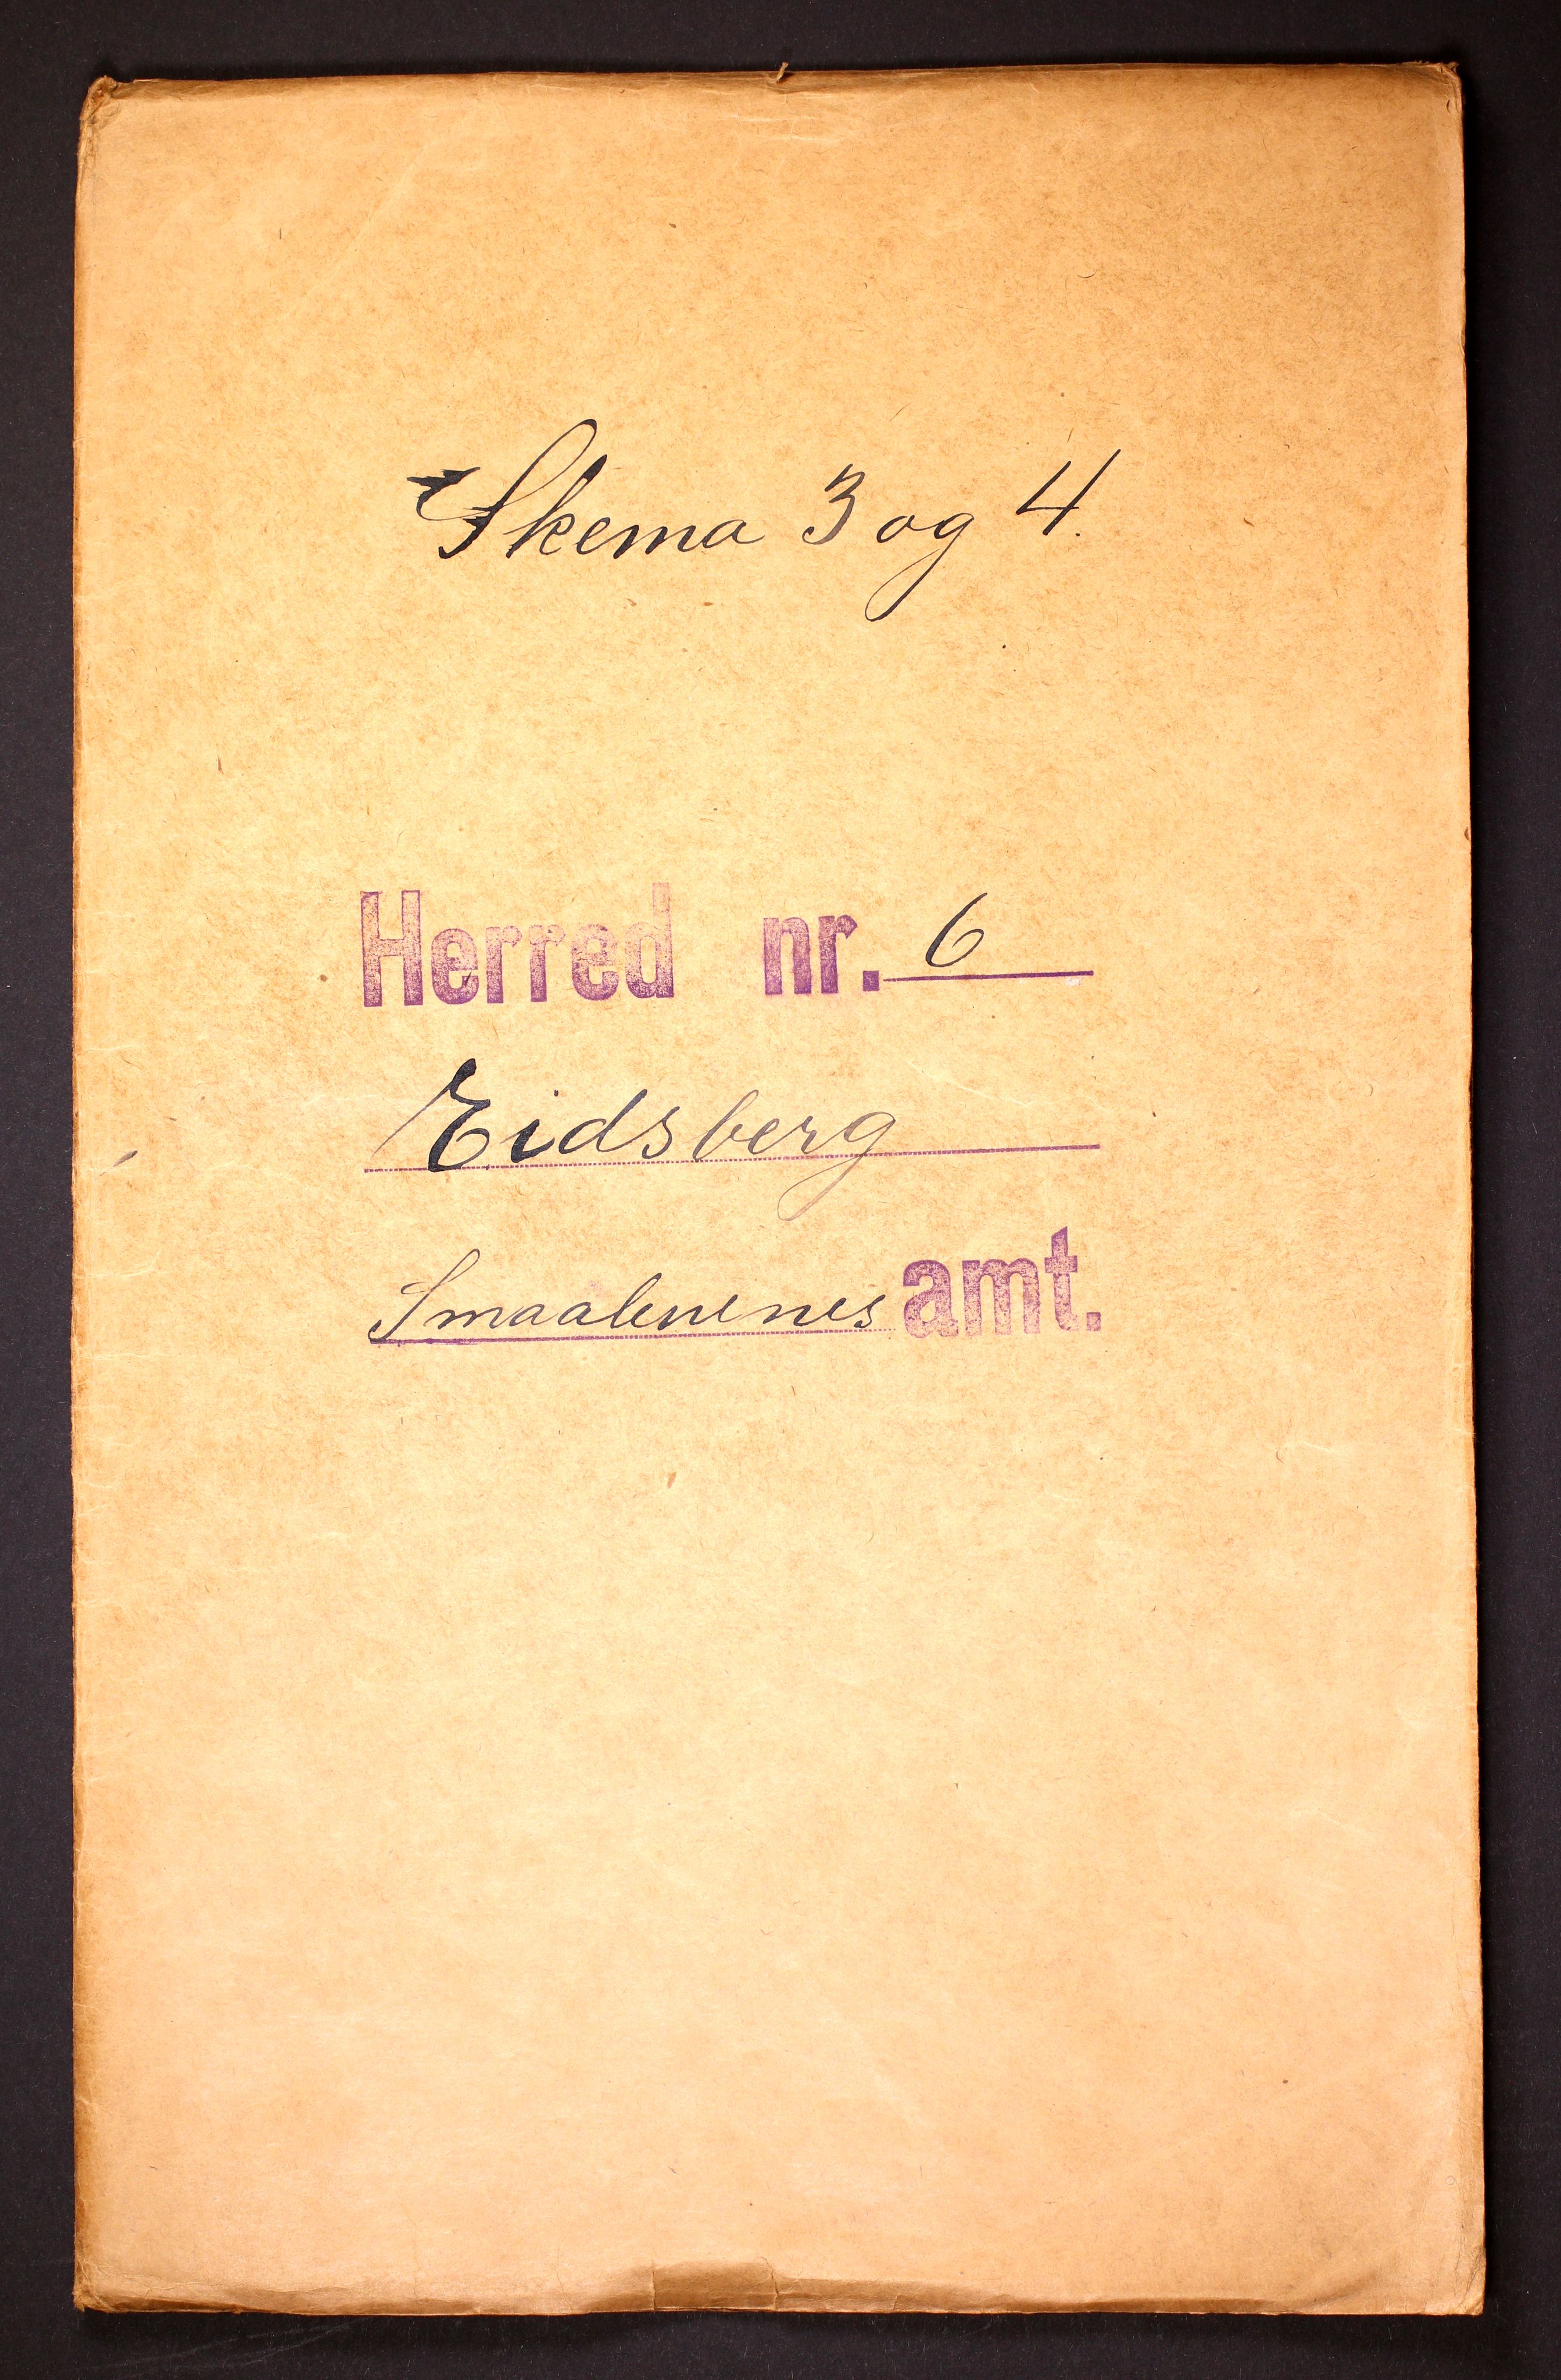 Skema 3 og 4.
Herred nr. 6
Eidsberg
Smaalenenes amt.